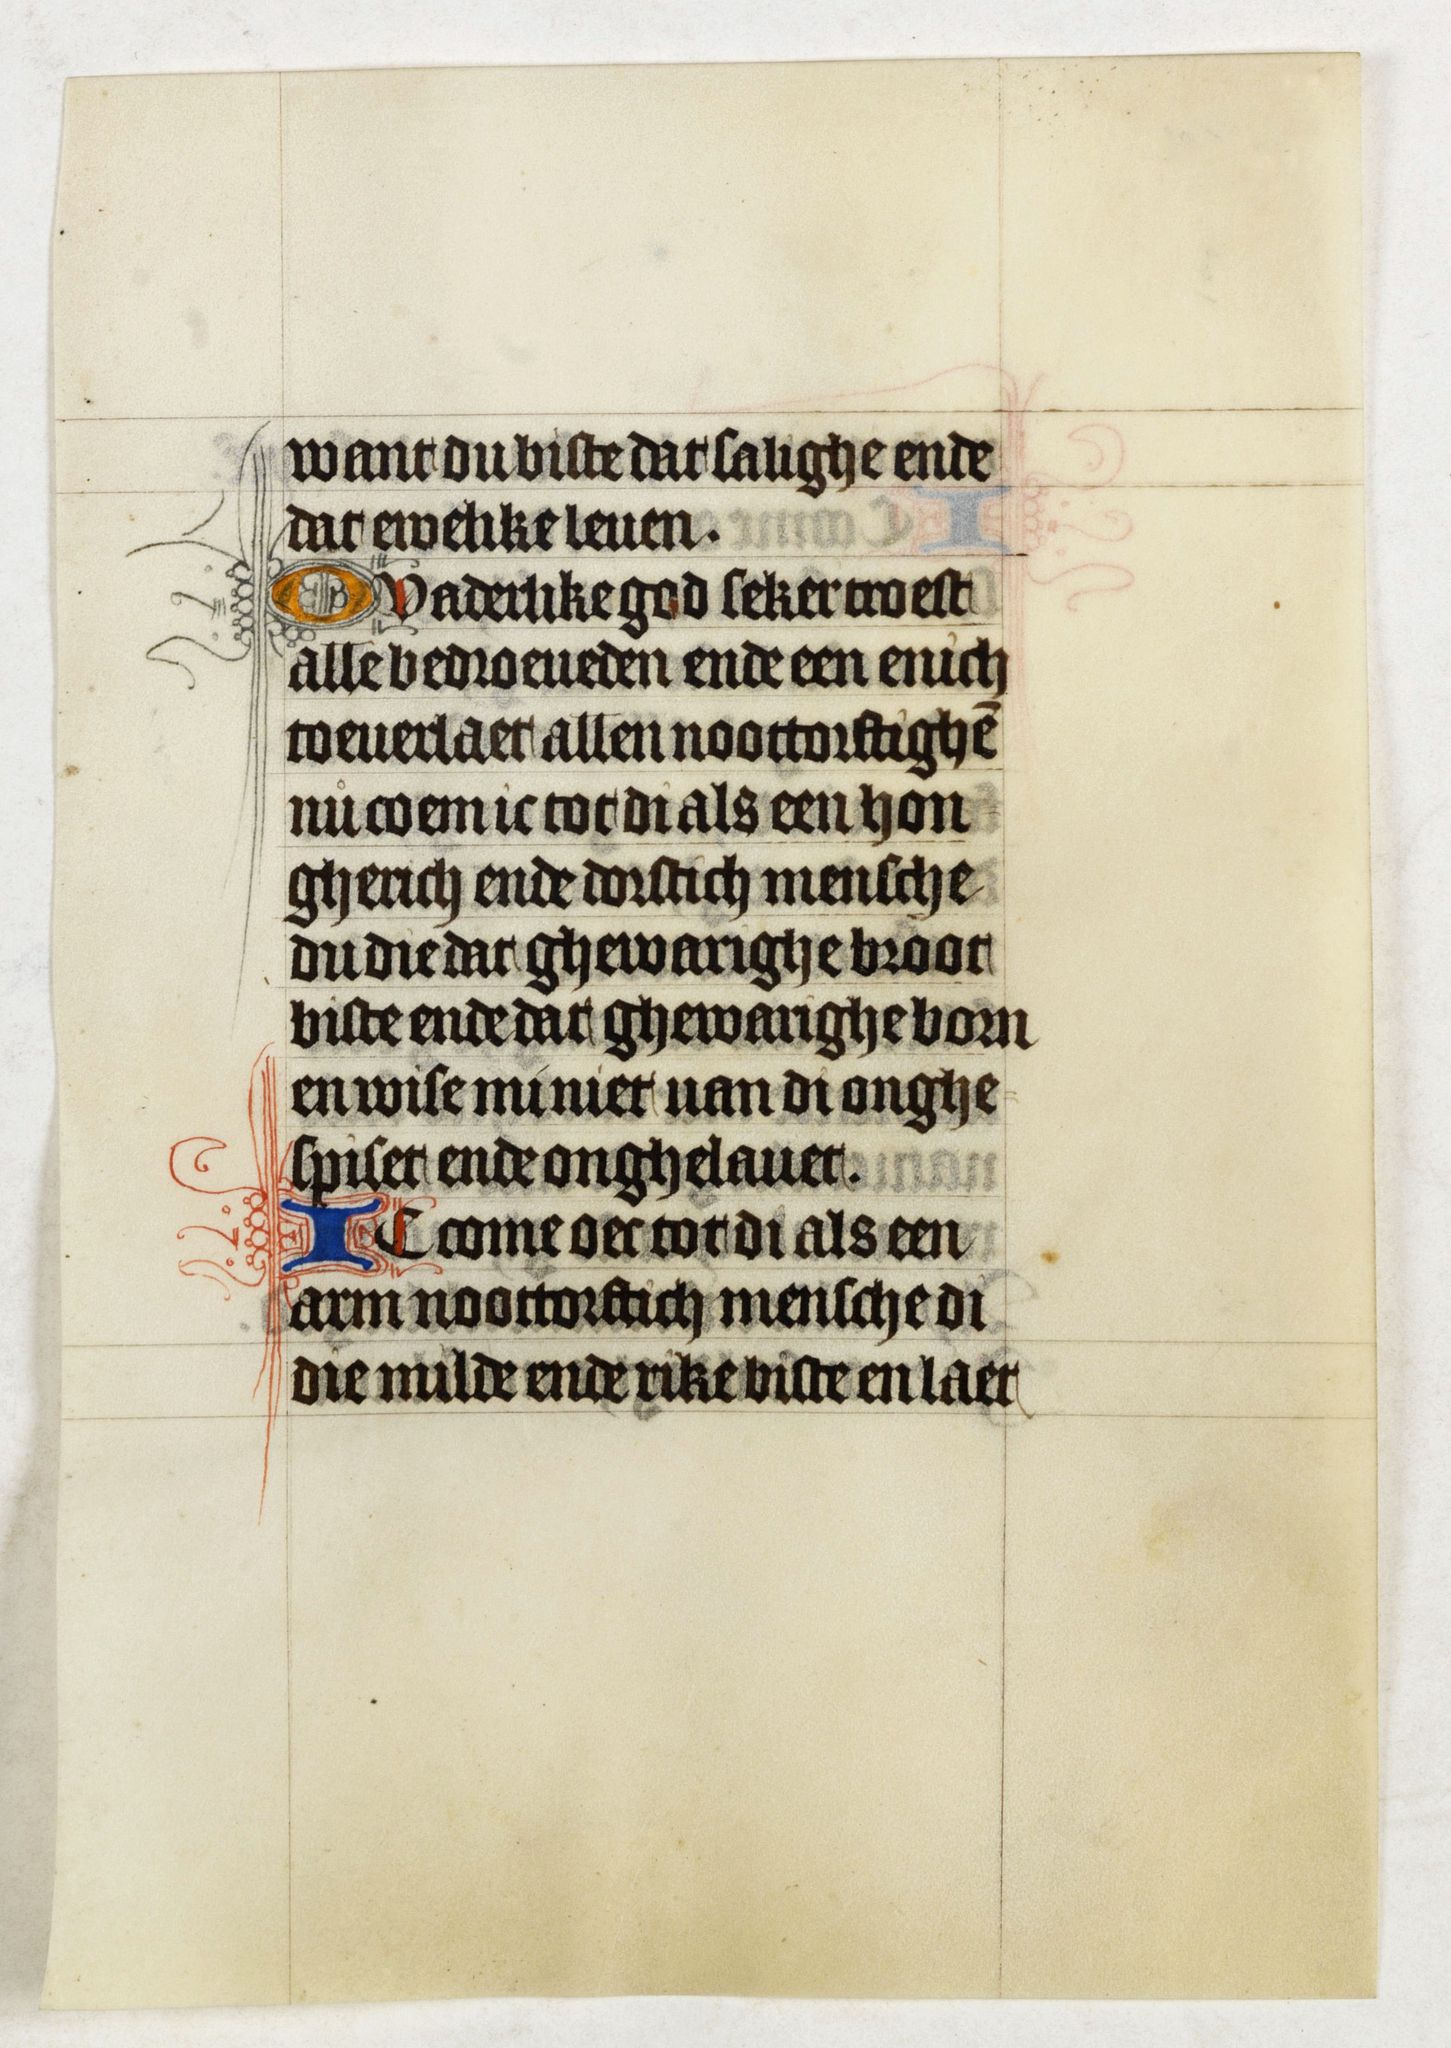 want du biste dat salighe ende
dat ewelike leuen.
O Vaderlike god seker troest
alle bedroeueden ende een enich
toeuerlaet allen noottorftighē
nů coem ic tot di als een hon
gherich ende dorstich mensche
du die dat ghewarighe broot
biste ende dat ghewarighe born
en wise mi niet uan di onghe
spiset ende onghelauet.
IC come oec tot di als een
arm noottorftich mensche di
die milde ende rike biste en laet